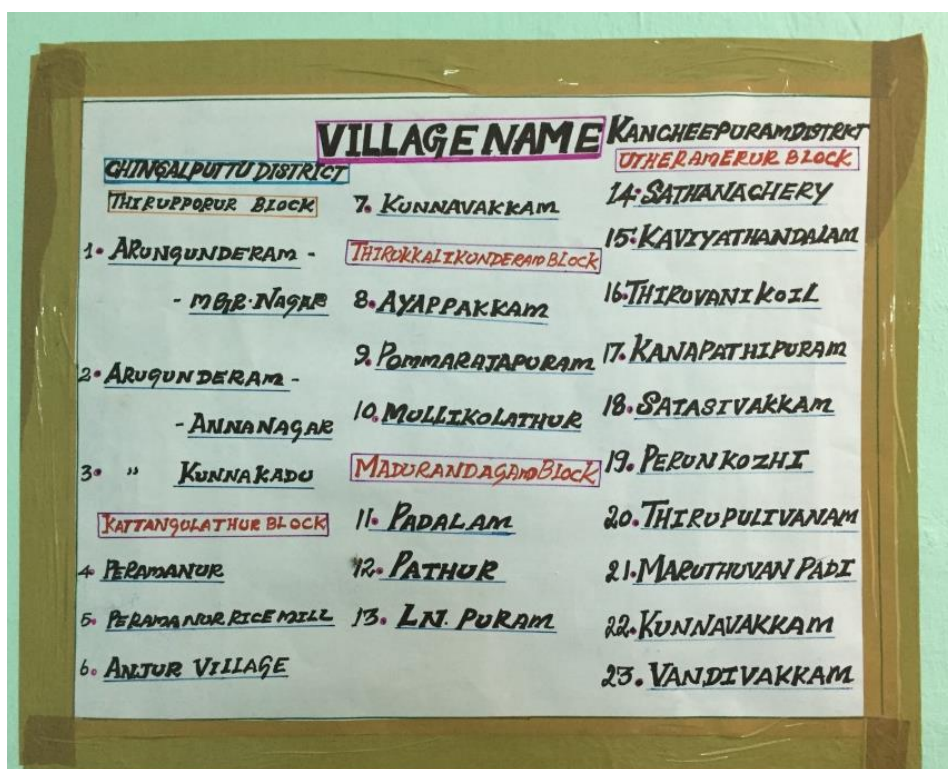 VILLAGE NAME
CHINGALPUTTU DISTRICT
THIRUPPORUR BLOCK
1. ARUNGUNDERAM -
- MGR. NAGAR
2. ARUGUNDERAM -
- ANNA NAGAR
3. " KUNNAKADU
KATTANGULATHUR BLOCK
4. PERAMANUR
5. PERAMANUR RICE MILL
6. ANJUR VILLAGE
7. KUNNAVAKKAM
THIRUKKALIKUNDERAM BLOCK
8. AYAPPAKKAM
9. POMMARAJAPURAM
10. MULLIKOLATHUR
MADURANDAGAM BLOCK
11. PADALAM
12. PATHUR
13. LN. PURAM
KANCHEEPURAM DISTRICT
UTHERAMERUR BLOCK
14. SATHANACHERY
15. KAVIYATHANDALAM
16. THIRUVANIKOIL
17. KANAPATHIPURAM
18. SATASIVAKKAM
19. PERUNKOZHI
20. THIRUPULIVANAM
21. MARUTHUVAN PADI
22. KUNNAVAKKAM
23. VANDIVAKKAM